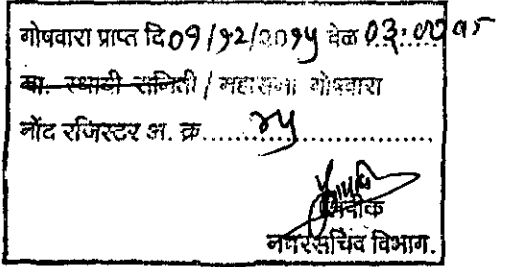 गोषवारा प्राप्त दि ०१/१२/२०१५ वेळ ०३:००
मा. स्थायी समिती / महासभा गोषवारा
नोंद रजिस्टर अ. क्र.....४५.....
नगरसचिव विभाग.